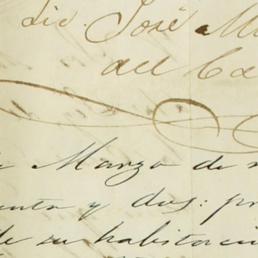 Lic. José M
del Ca
Marzo de
enta y dos: p
de su habitació